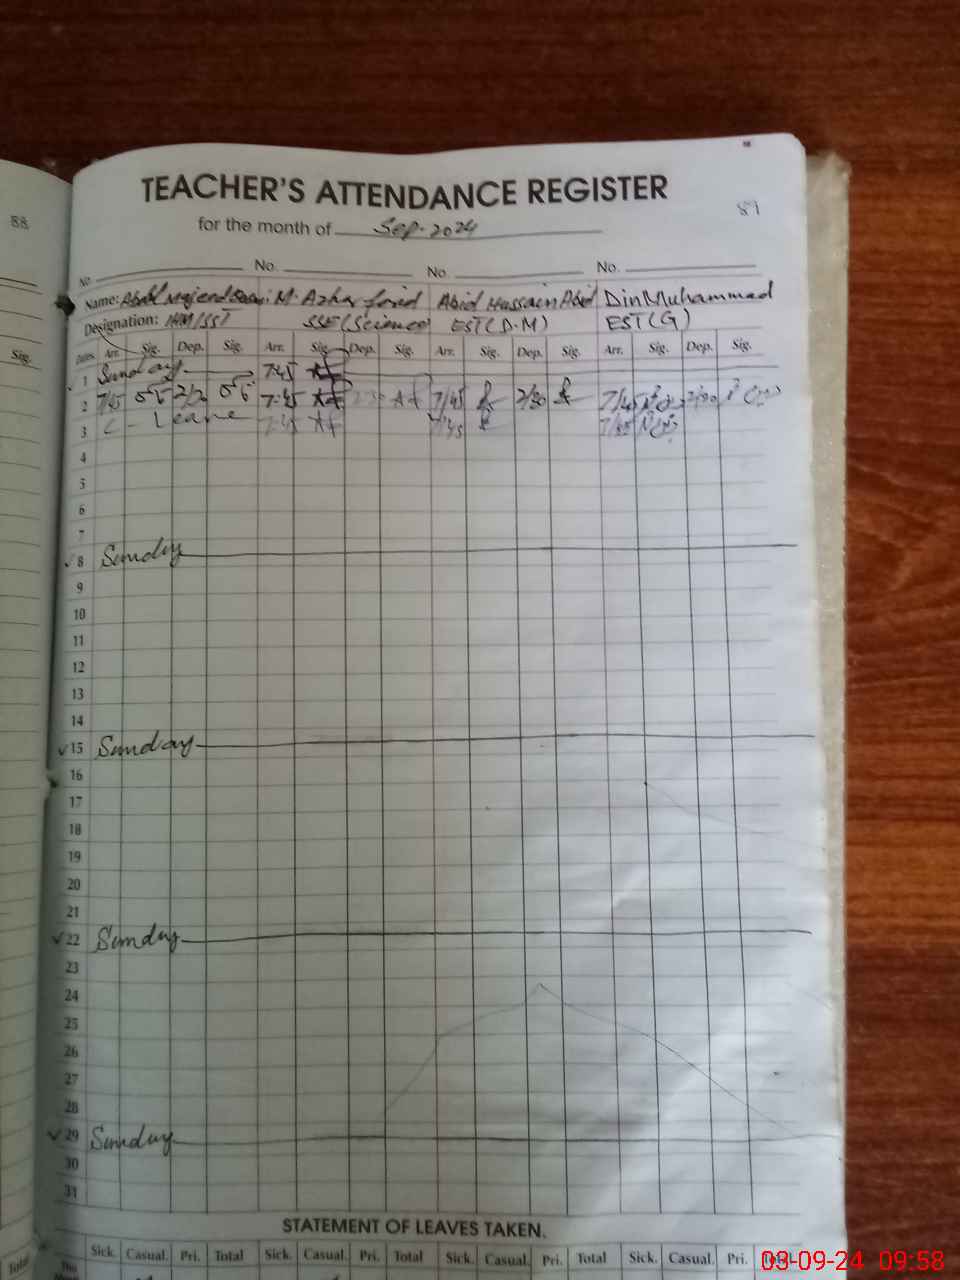 88
Sig.
Total
TEACHER'S ATTENDANCE REGISTER
89
for the month of Sep. 2024
No. No. No. No.
Name: Abdul Majeed M. Azhar Farid Abid Hussain Abid Din Muhammad
Designation: HM/SST SSE (Science) EST (D.M) EST (G)
Dates Arr. Sig. Dep. Sig. Arr. Sig. Dep. Sig. Arr. Sig. Dep. Sig. Arr. Sig. Dep. Sig.
1 Sunday 7:45
2 7/45 2/30 7:45 2:30 7/45 2/30 7/45 2/30
3 C - Leave 7:45 7/45 7/45
4
5
6
7
8 Sunday
9
10
11
12
13
14
15 Sunday
16
17
18
19
20
21
22 Sunday
23
24
25
26
27
28
29 Sunday
30
31
STATEMENT OF LEAVES TAKEN.
This Sick. Casual. Pri. Total Sick. Casual. Pri. Total Sick. Casual. Pri. Total Sick. Casual. Pri. Total
03-09-24 09:58